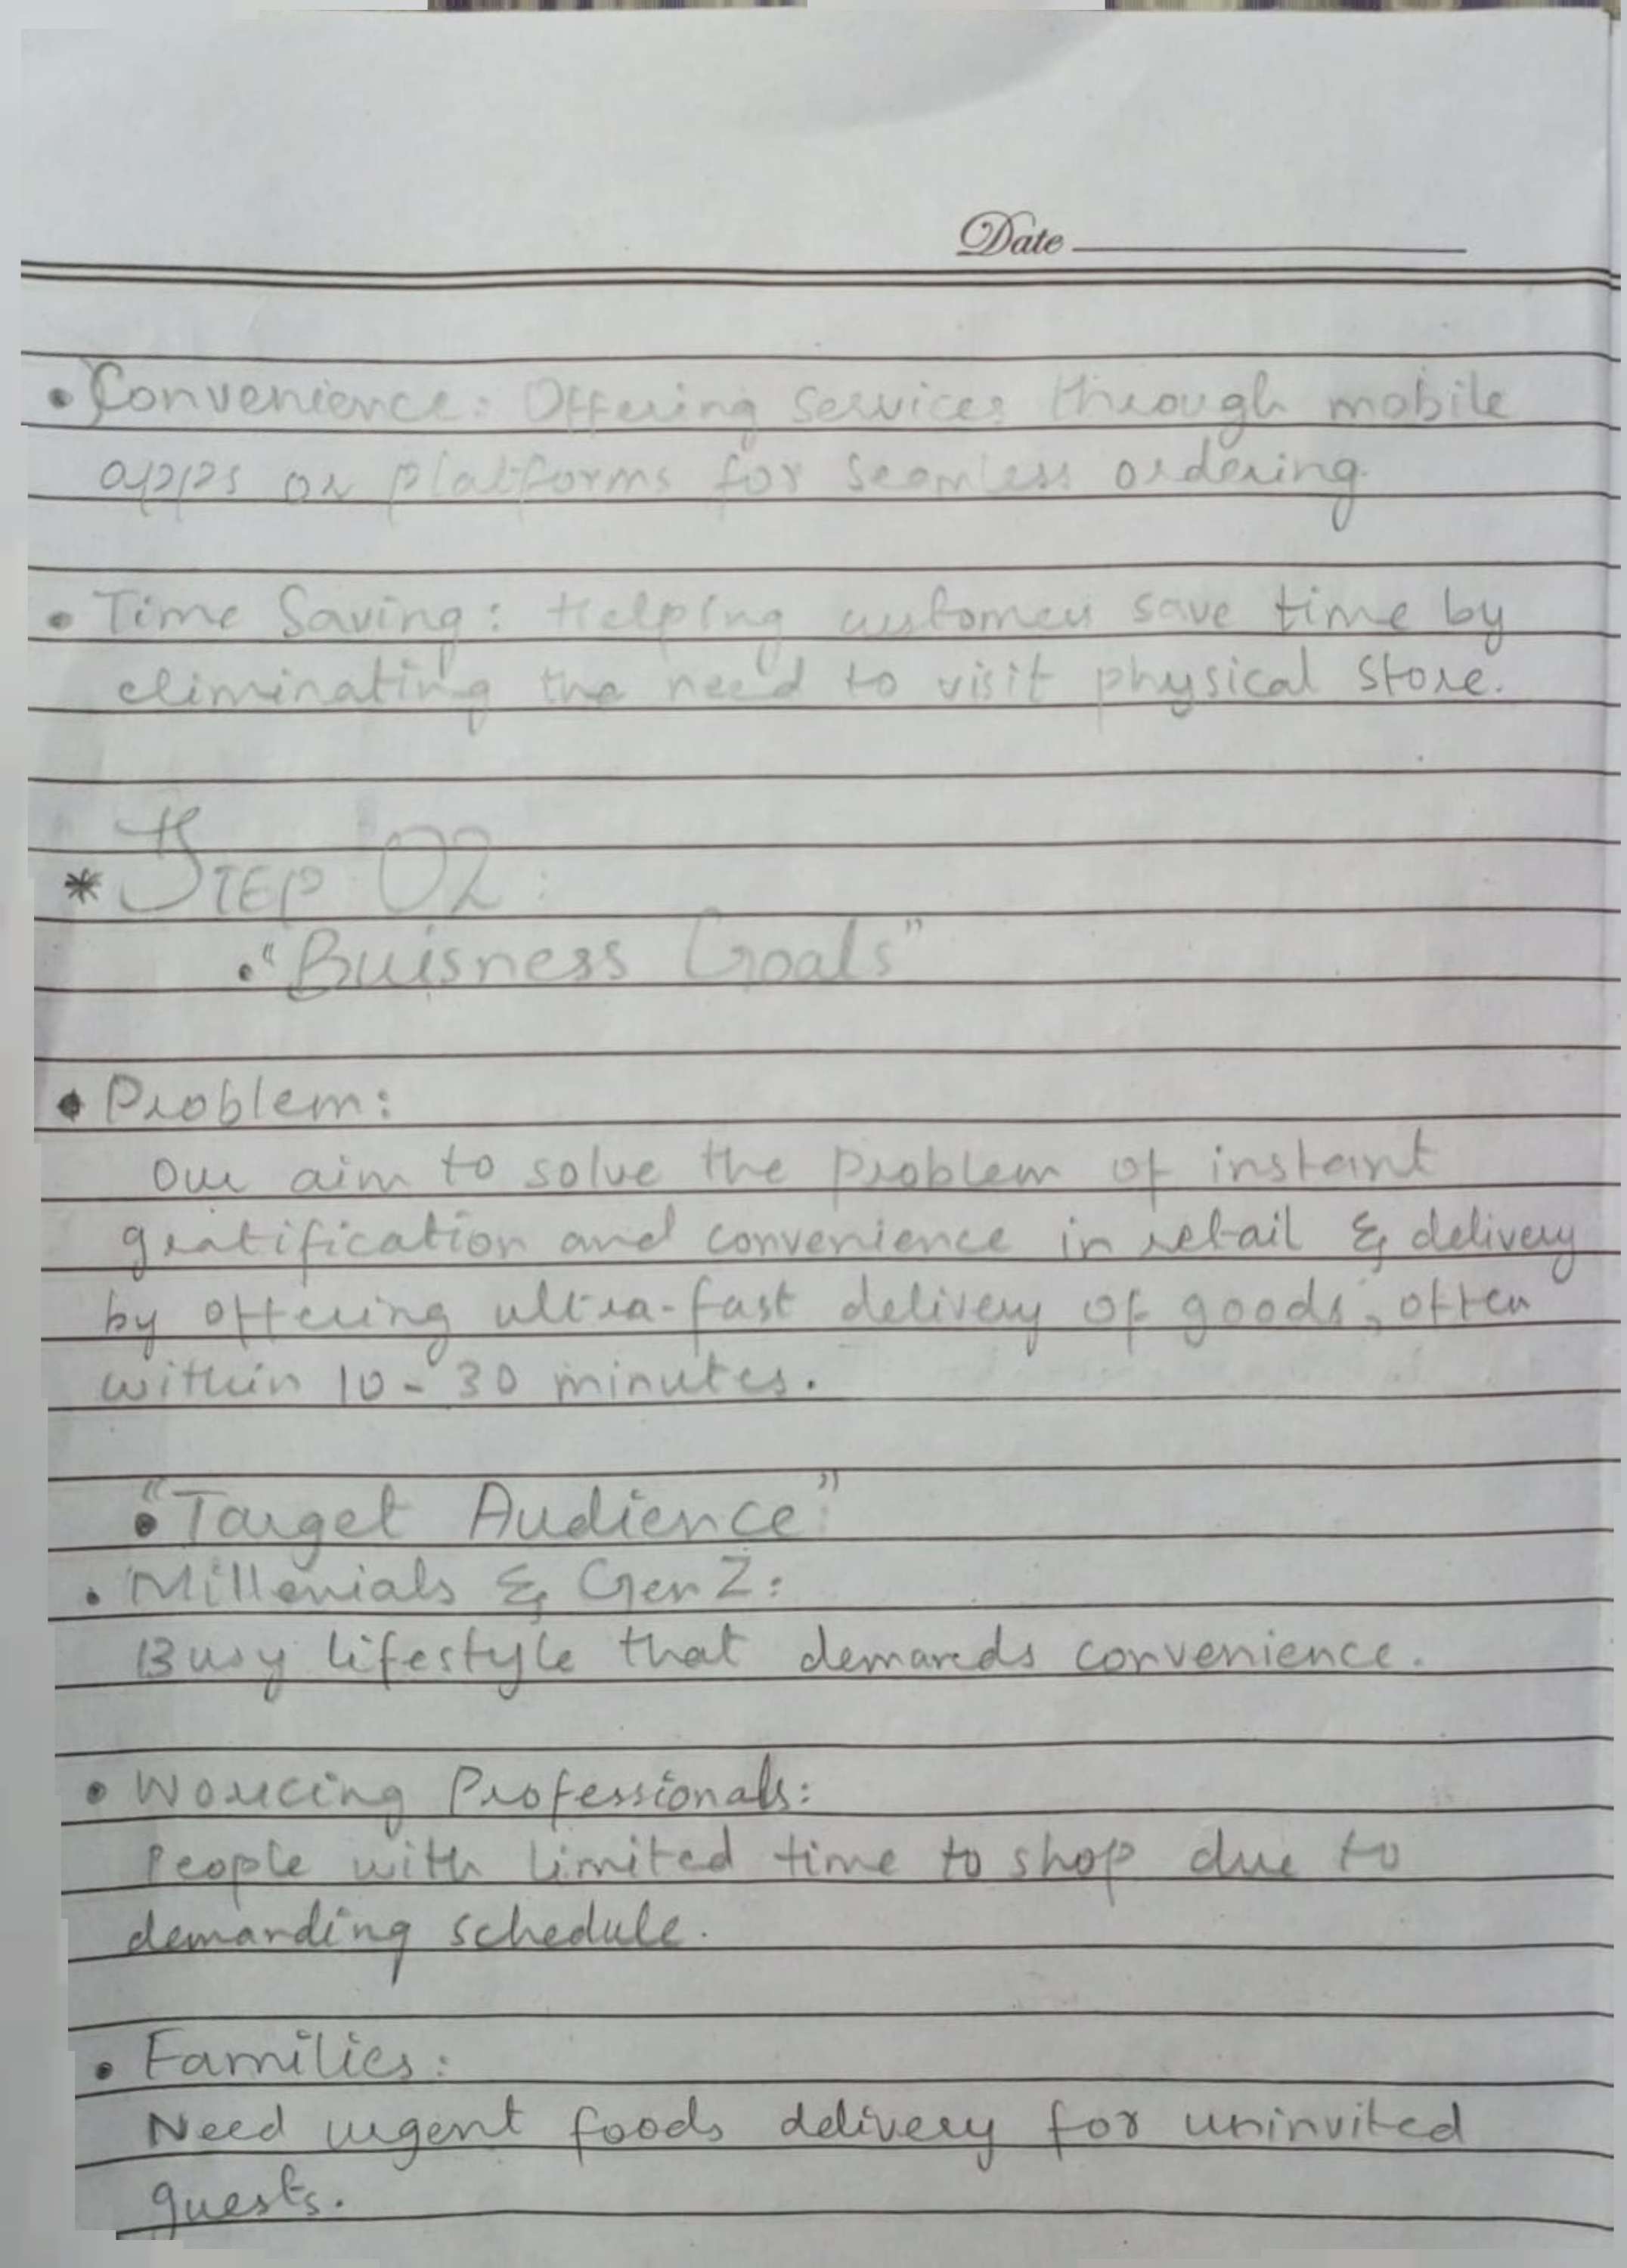 Date
• Convenience: Offering services through mobile
apps or platforms for seamless ordering.
• Time Saving: Helping customers save time by
eliminating the need to visit physical store.
* STEP 02:
• "Buisness Goals"
• Problem:
Our aim to solve the problem of instant
gratification and convenience in retail & delivery
by offering ultra-fast delivery of goods, often
within 10-30 minutes.
• "Target Audience"
• Millenials & Gen Z:
Busy lifestyle that demands convenience.
• Working Professionals:
People with limited time to shop due to
demanding schedule.
• Families:
Need urgent foods delivery for uninvited
guests.